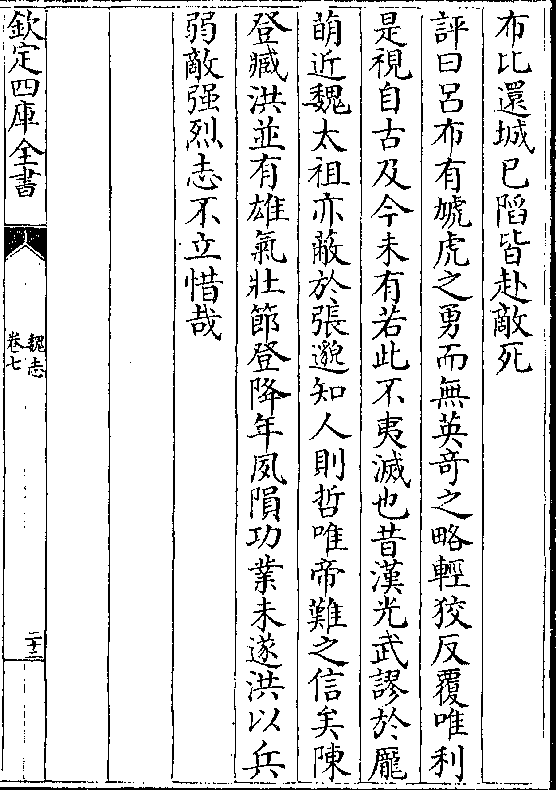 布比還城已䧟皆赴敵死
評曰呂布有虓虎之勇而無英竒之略輕狡反覆唯利
是視自古及今未有若此不夷滅也昔漢光武謬於龐
萌近魏太祖亦蔽於張邈知人則哲唯帝難之信矣陳
登臧洪並有雄氣壯節登降年夙隕功業未遂洪以兵
弱敵强烈志不立惜哉
欽定四庫全書
魏志
卷七
二十三